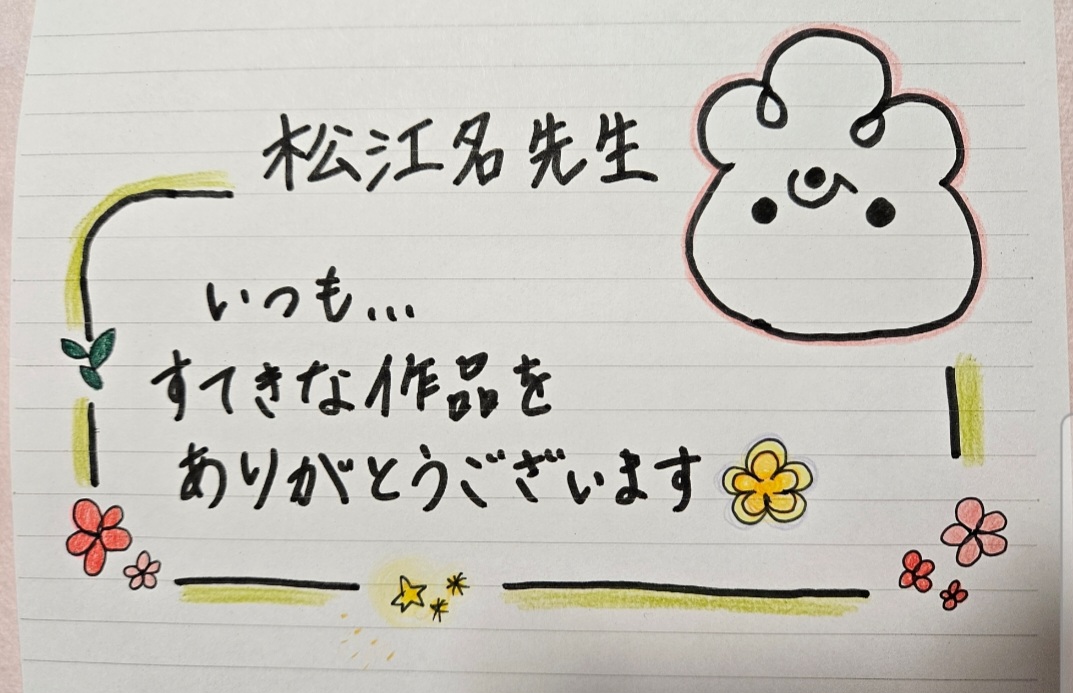 松江名先生
いつも...
すてきな作品を
ありがとうございます